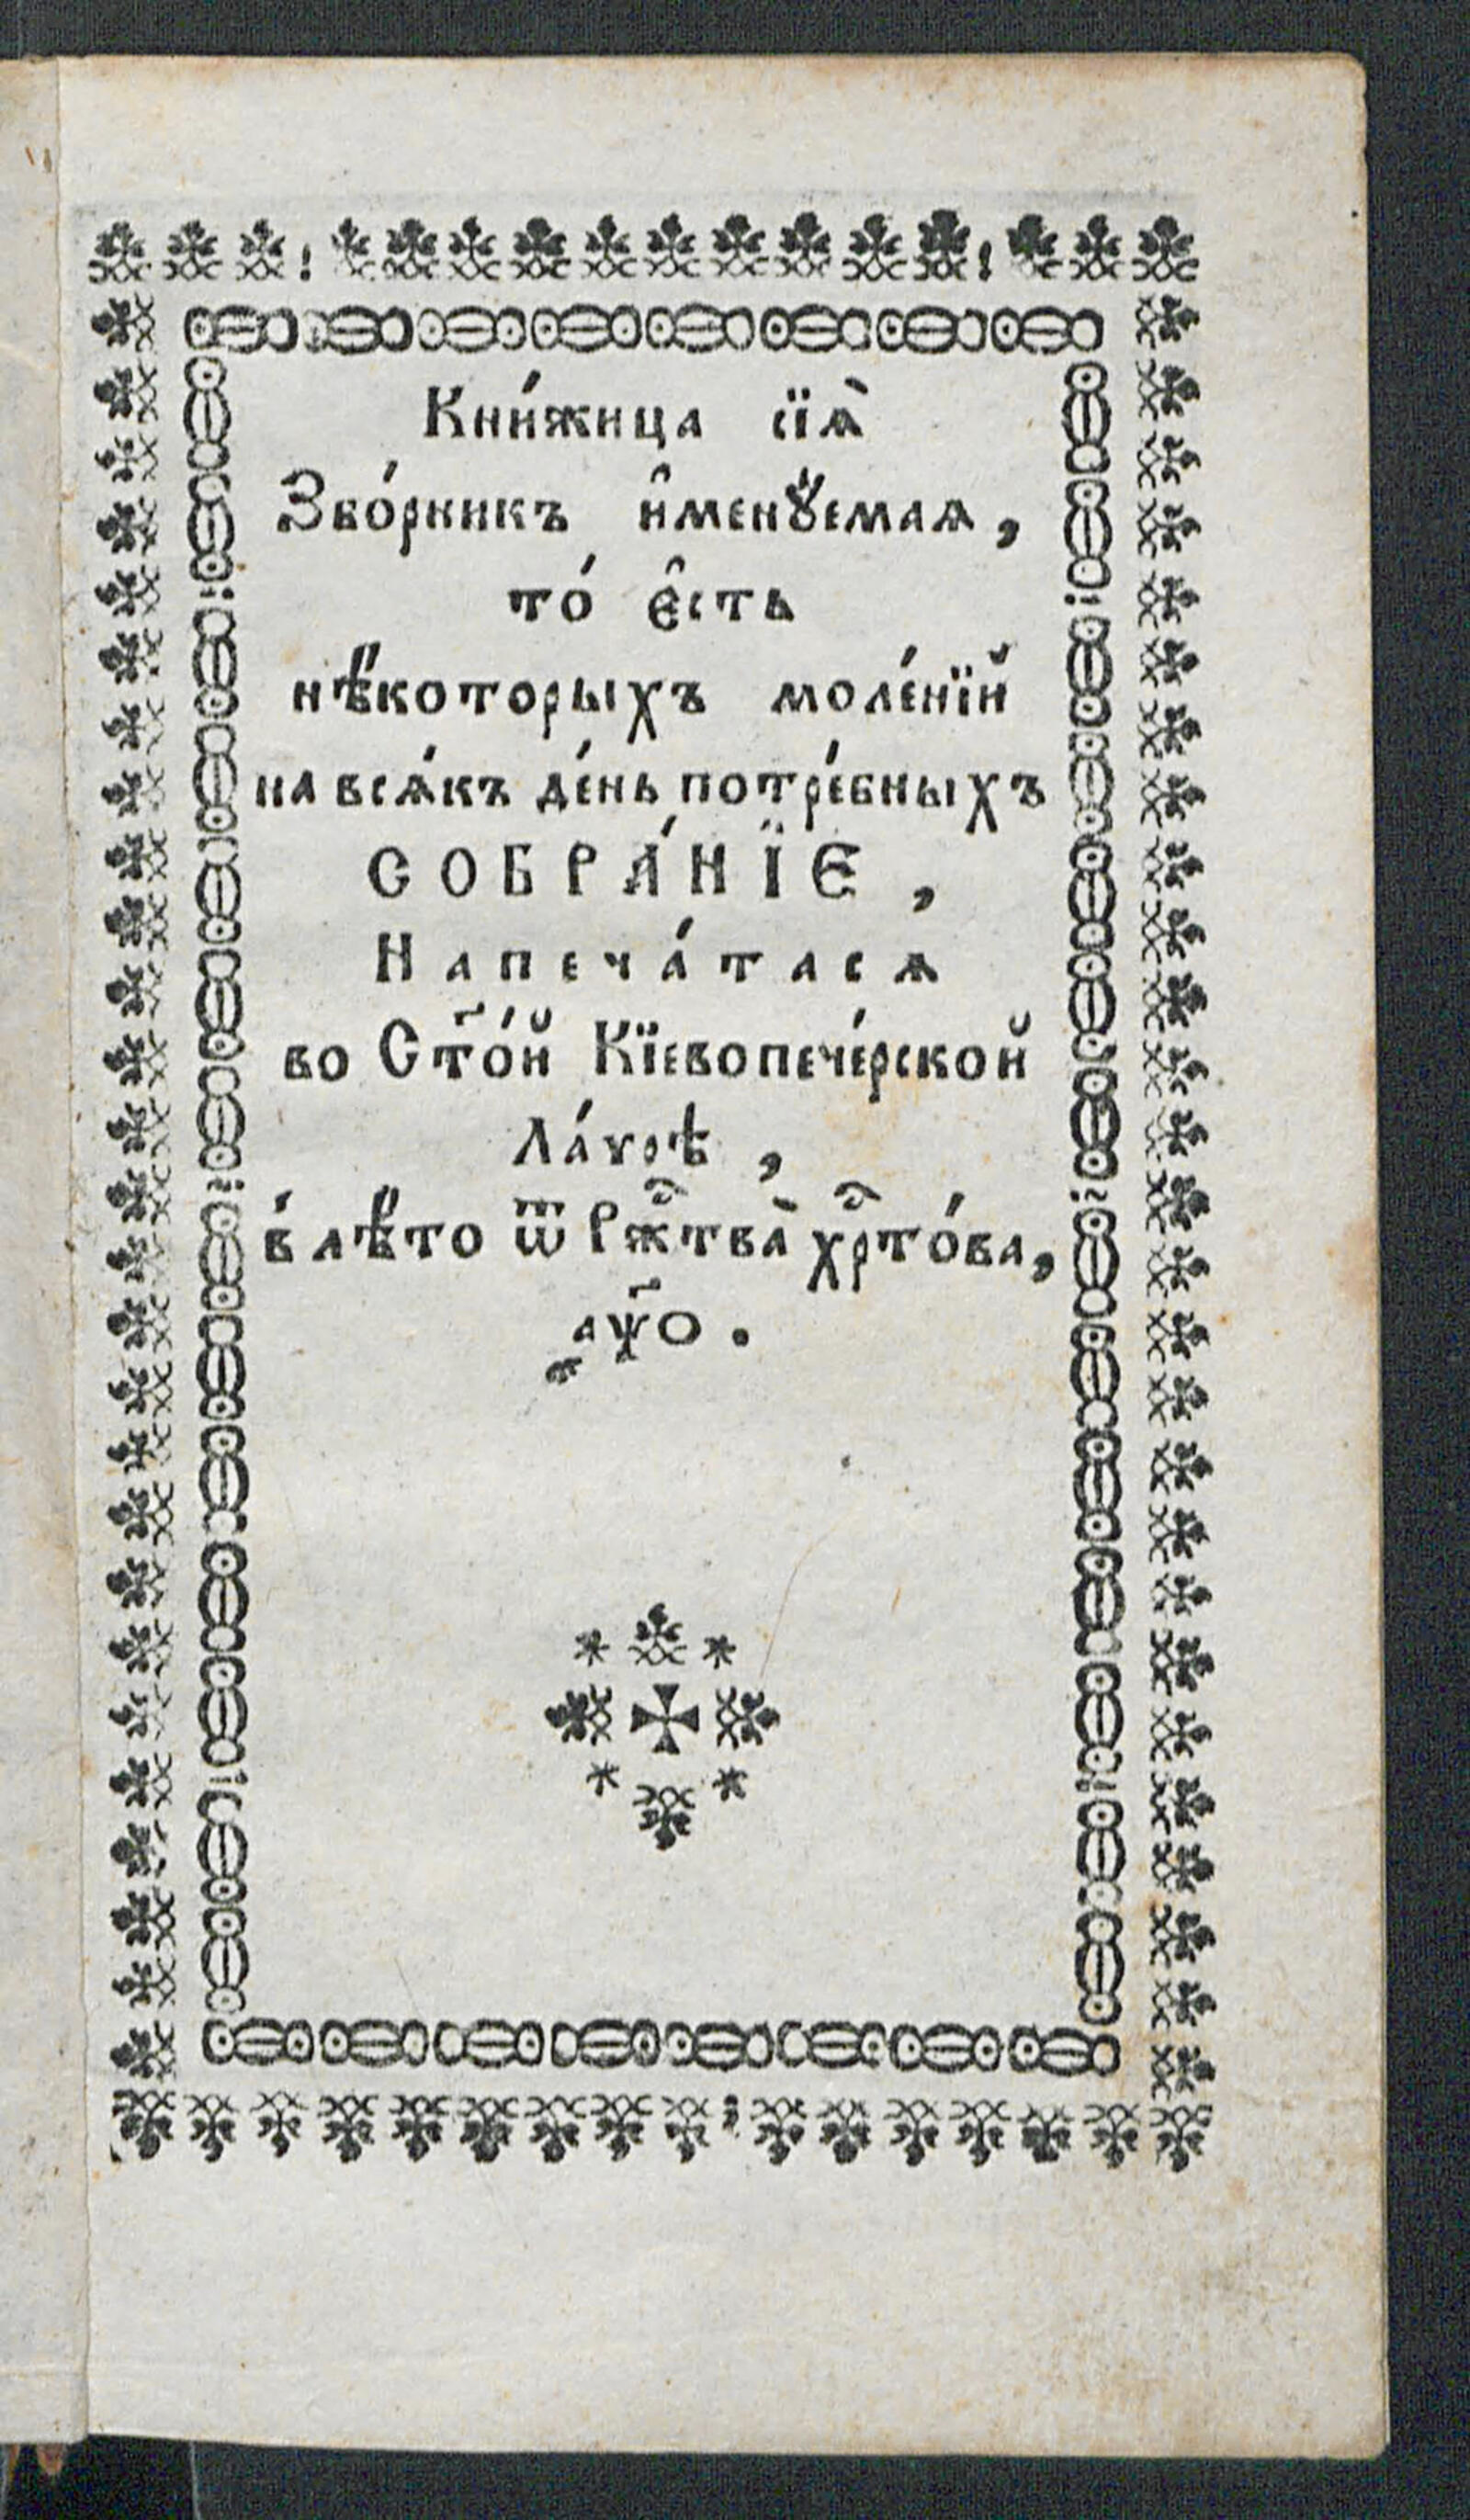 Кни́жица сїѧ̀
Зво́рникъ и҆менꙋ́емаѧ,
то́ є҆сть
нѣ́которыхъ моле́нїй
на всѧ́къ де́нь потре́бныхъ
СОБРА́НЇЕ,
Напеча́тасѧ
во Ст҃о́й Кїевопече́рской
Ла́ѵрѣ,
в́ лѣ́то ѿ Рж҇тва̀ хр҇то́ва,
҂аѱ҃о.